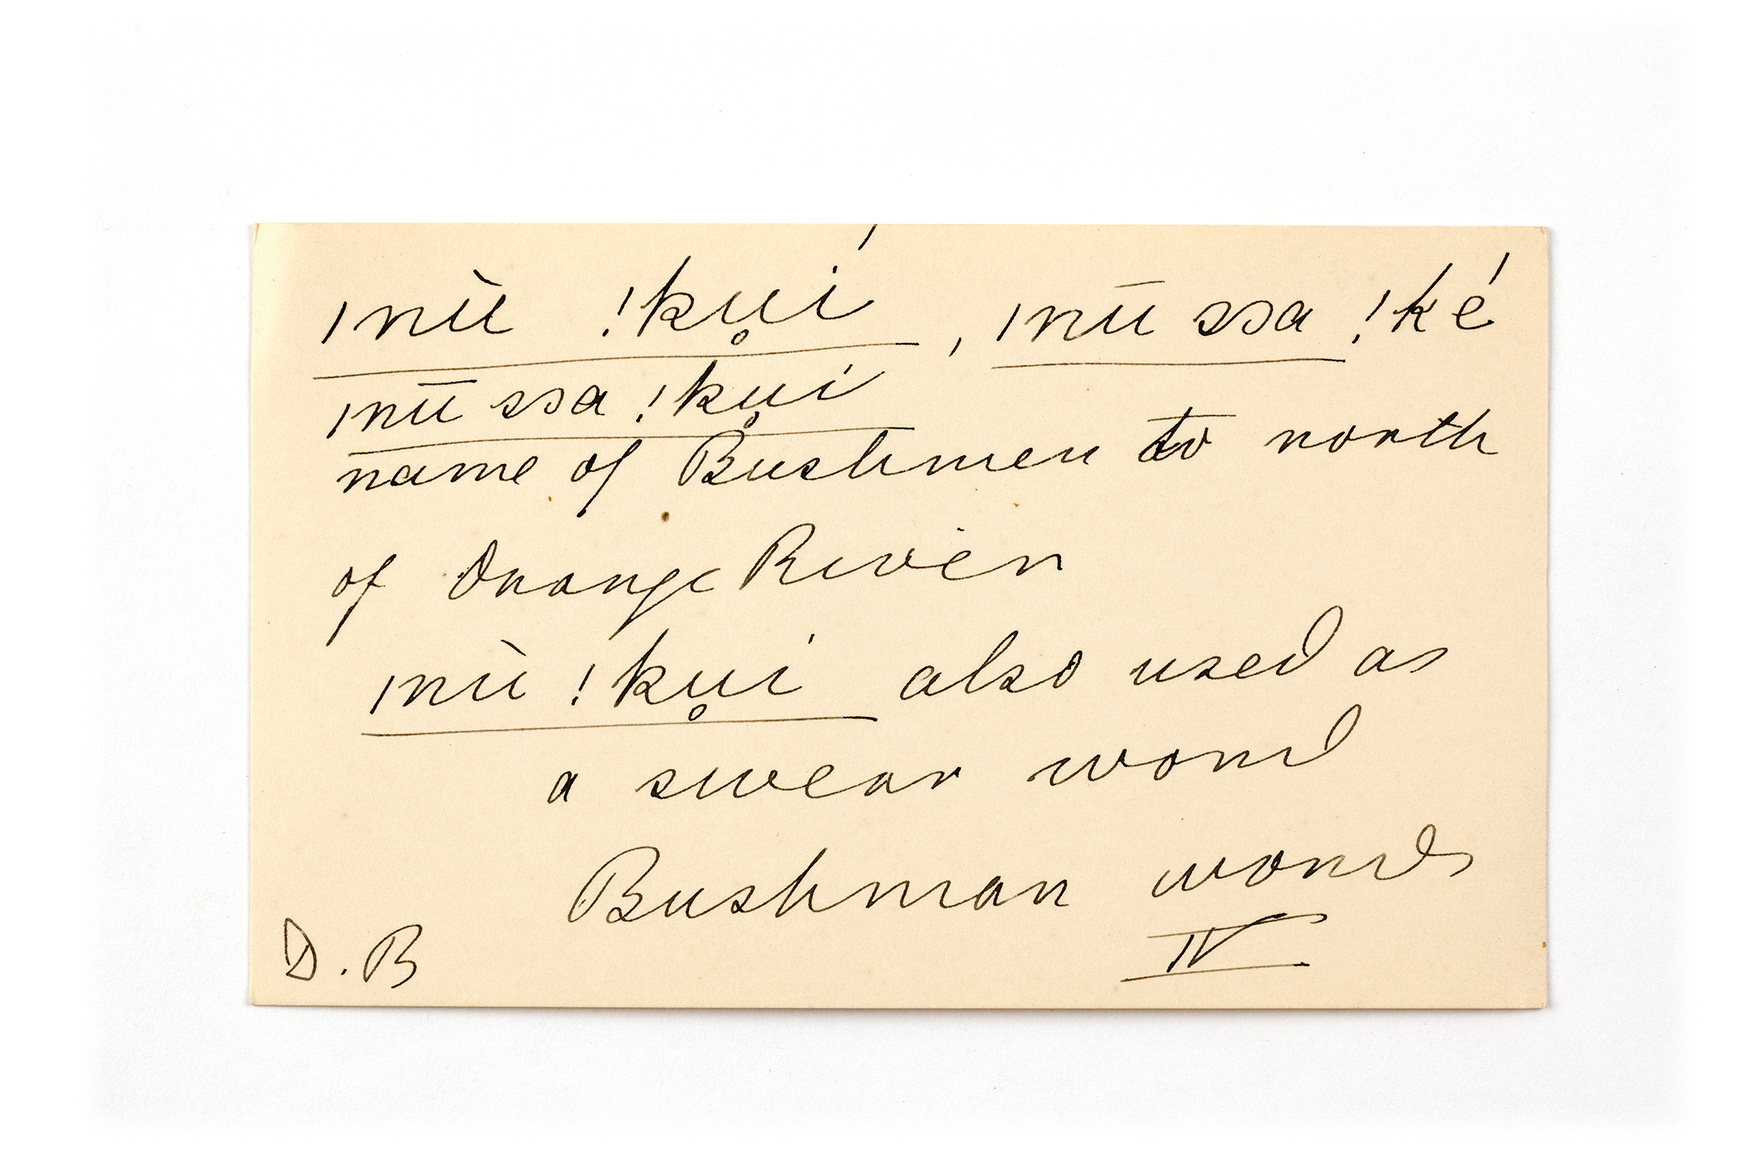 ǀnù !ku̥í, ǀnū ssa !ké
ǀnū ssa !ku̥í
name of Bushmen to north
of Orange River
ǀnù !ku̥í also used as
a swear word
Bushman words
D.B IV